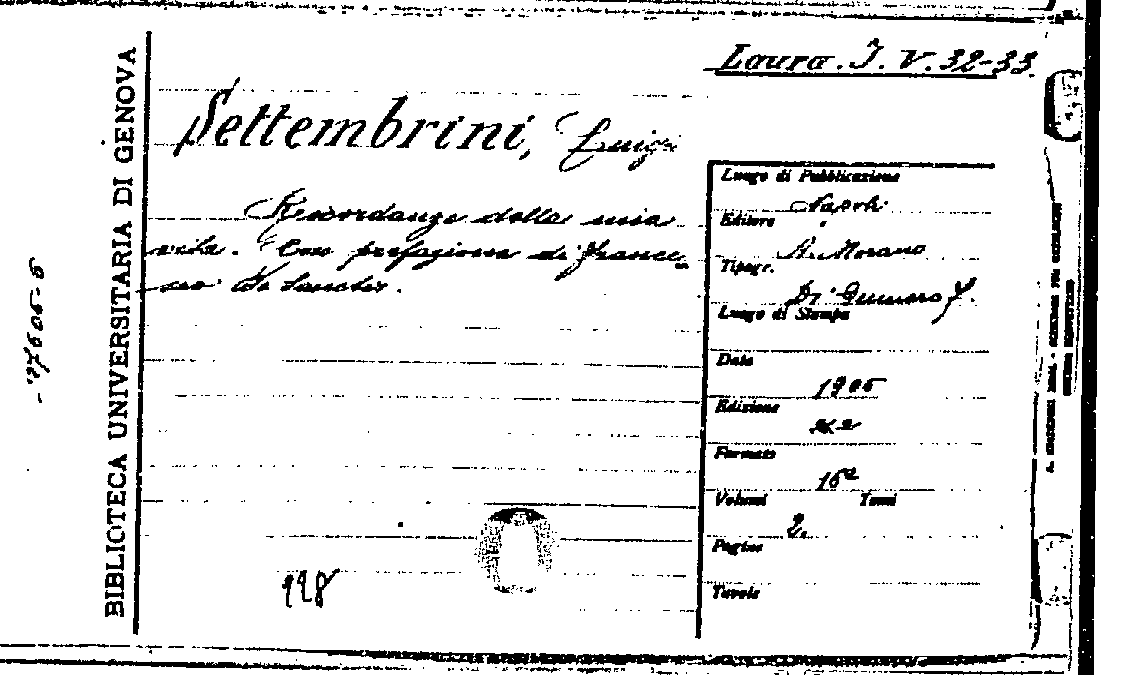 Laura. I. V. 32-33.
Settembrini, Luigi
Ricordanze della mia
vita. Con prefazione di France-
sco De Sanctis.
Luogo di Pubblicazione
Napoli
Editore
A. Morano
Tipogr.
Di Gennaro
Luogo di Stampa
Data
1905
Edizione
Formato
16°
Volumi Tomi
2.
Pagine
Tavole
BIBLIOTECA UNIVERSITARIA DI GENOVA